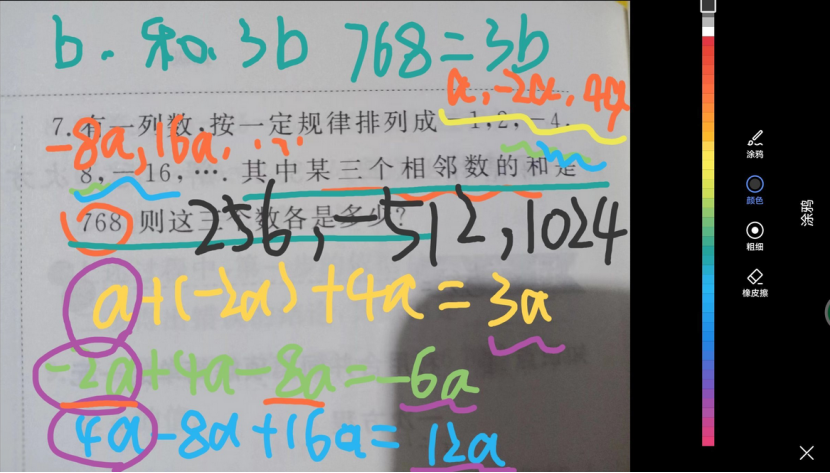 b. 和 3b 768=3b
a,-2a,4a
7.有一列数,按一定规律排列成-1,2,-4,
-8a,16a,…
8,-16,…. 其中某三个相邻数的和是
768 则这三个数各是多少?
256,-512,1024
a+(-2a)+4a=3a
-2a+4a-8a=-6a
4a-8a+16a=12a
涂鸦
颜色
粗细
橡皮擦
涂鸦